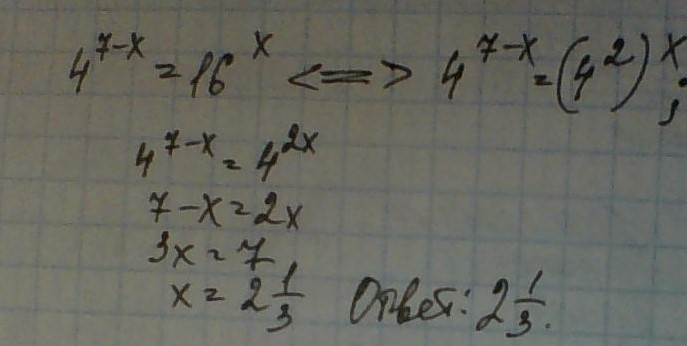 4^{7-x} = 16^x <=> 4^{7-x} = (4^2)^x;
4^{7-x} = 4^{2x}
7-x = 2x
3x = 7
x = 2 1/3 Ответ: 2 1/3.